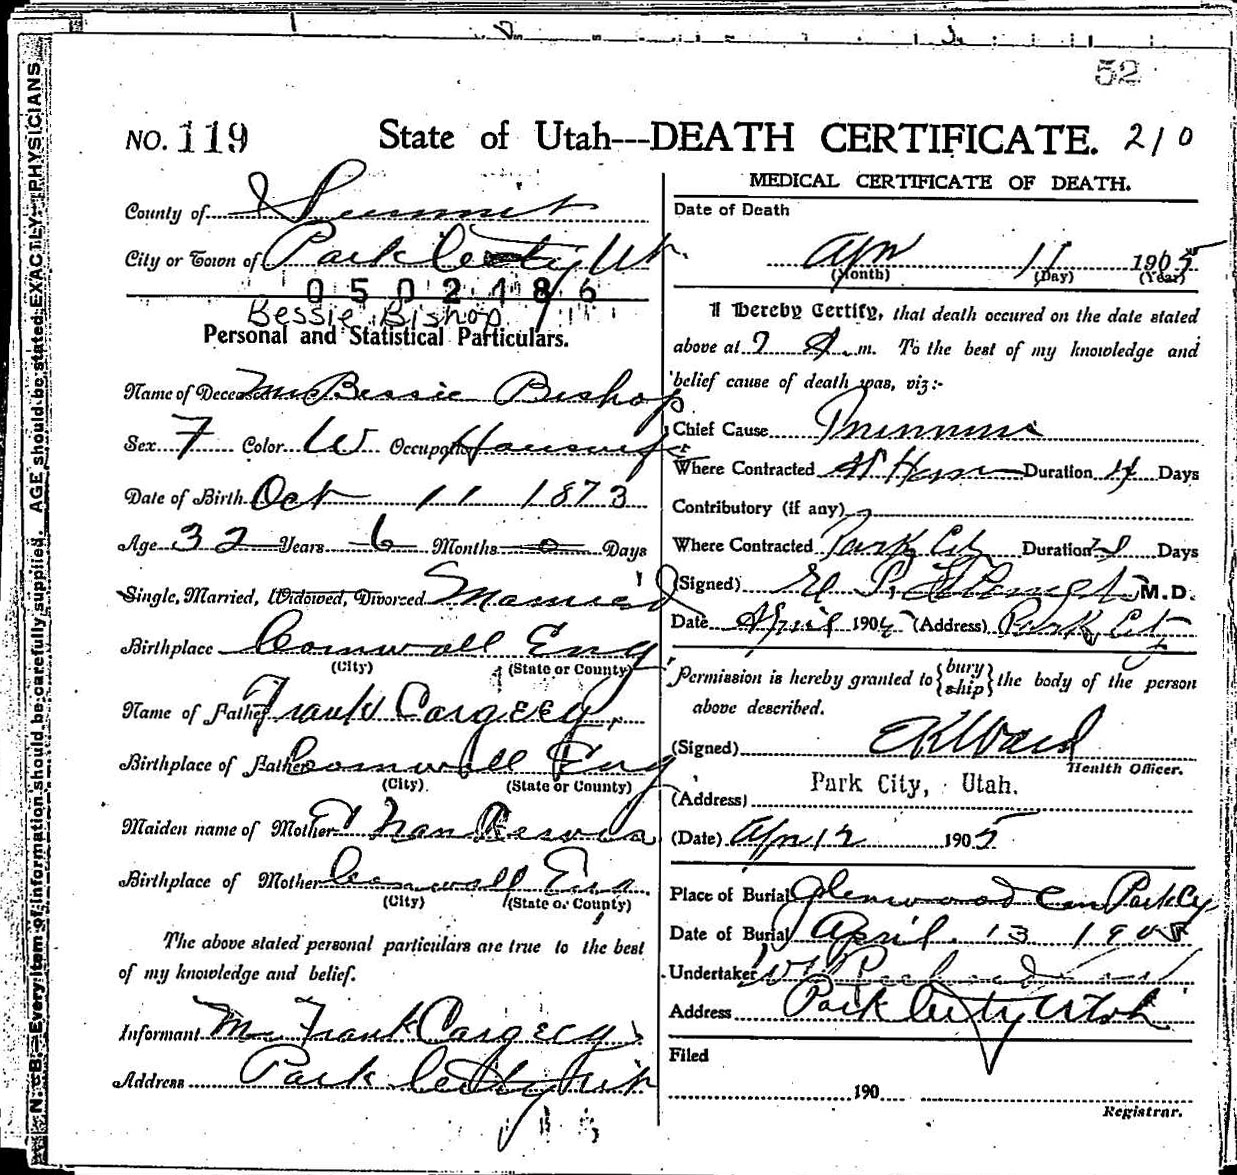 52
NO. 119 State of Utah---DEATH CERTIFICATE. 210
County of Summit
City or Town of Park City Ut.
0502486
Bessie Bishop
Personal and Statistical Particulars.
Name of Deceased Mrs Bessie Bishop
Sex F Color W Occupation Housewife
Date of Birth Oct 11 1873
Age 32 Years 6 Months 0 Days
Single, Married, Widowed, Divorced Married
Birthplace Cornwall Eng
(City) (State or County)
Name of Father Frank Cargeeg
Birthplace of Father Cornwall Eng
(City) (State or County)
Maiden name of Mother
Birthplace of Mother Cornwall Eng.
(City) (State or County)
The above stated personal particulars are true to the best
of my knowledge and belief.
Informant Mr Frank Cargeeg
Address Park City Utah
MEDICAL CERTIFICATE OF DEATH.
Date of Death
Apr 11 1905
(Month) (Day) (Year)
I Hereby Certify, that death occured on the date stated
above at 7 A. m. To the best of my knowledge and
belief cause of death was, viz:-
Chief Cause
Where Contracted At Home Duration Days
Contributory (if any)
Where Contracted Park City Duration Days
(Signed) M.D.
Date April 190 (Address) Park City
Permission is hereby granted to {bury ship} the body of the person
above described.
(Signed) Ward
Health Officer.
(Address) Park City, Utah.
(Date) Apr 12 1905
Place of Burial Glenwood Cem Park Cy
Date of Burial April 13 1905
Undertaker
Address Park City Utah
Filed
190
Registrar.
N. B.—Every item of information should be carefully supplied. AGE should be stated EXACTLY. PHYSICIANS